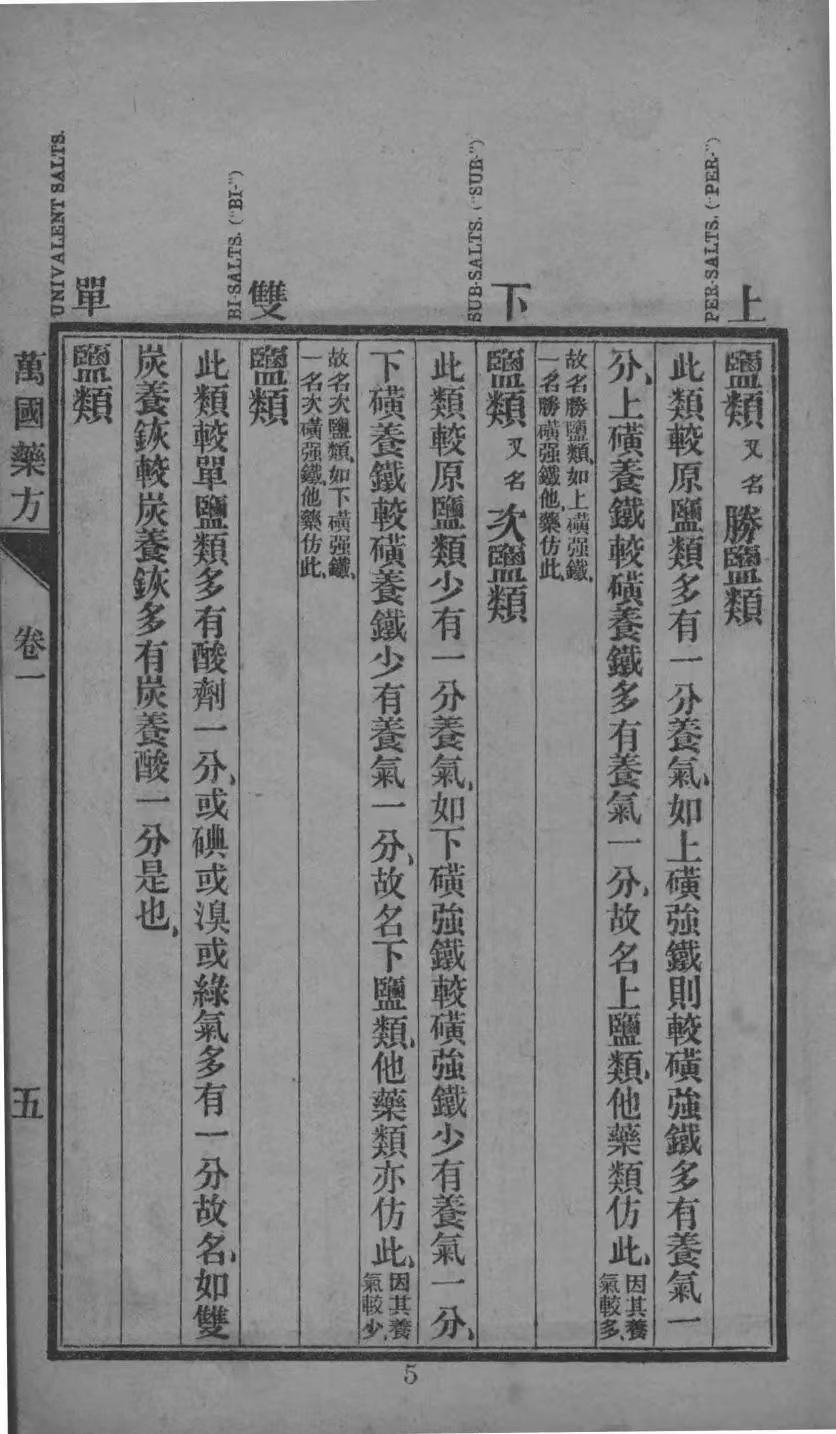 PER-SALTS. ("PER-")
上鹽類 又名 勝鹽類
此類較原鹽類多有一分養氣、如上磺強鐵則較磺強鐵多有養氣一
分、上磺養鐵較磺養鐵多有養氣一分、故名上鹽類、他藥類仿此、因其養
氣較多、
故名勝鹽類、如上磺强鐵、
一名勝磺强鐵、他藥仿此、
SUB-SALTS. ("SUB-")
下鹽類 又名 次鹽類
此類較原鹽類少有一分養氣、如下磺強鐵較磺強鐵少有養氣一分、
下磺養鐵較磺養鐵少有養氣一分、故名下鹽類、他藥類亦仿此、因其養
氣較少、
故名次鹽類、如下磺强鐵、
一名次磺强鐵、他藥仿此、
BI-SALTS. ("BI-")
雙鹽類
此類較單鹽類多有酸劑一分、或碘或溴或綠氣多有一分故名、如雙
炭養鋏較炭養鋏多有炭養酸一分是也、
UNIVALENT SALTS.
單鹽類
萬國藥方 卷一 五
5